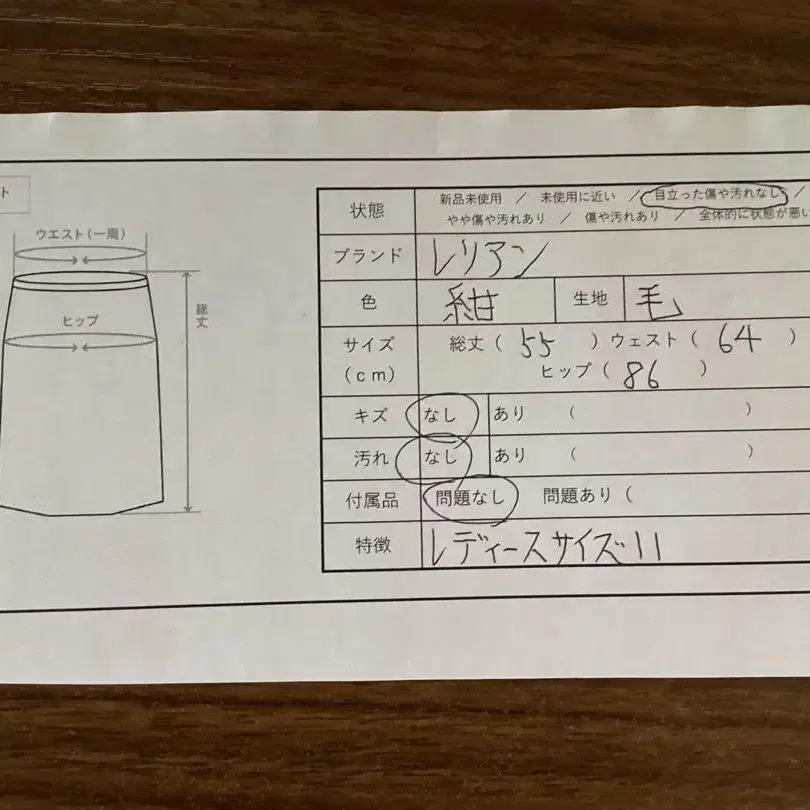 ト
ウエスト(一周)
ヒップ
総丈
状態 新品未使用 / 未使用に近い / 目立った傷や汚れなし /
やや傷や汚れあり / 傷や汚れあり / 全体的に状態が悪い
ブランド レリアン
色 紺 生地 毛
サイズ 総丈( 55 )ウェスト( 64 )
(cm) ヒップ( 86 )
キズ なし あり ( )
汚れ なし あり ( )
付属品 問題なし 問題あり (
特徴 レディースサイズ11